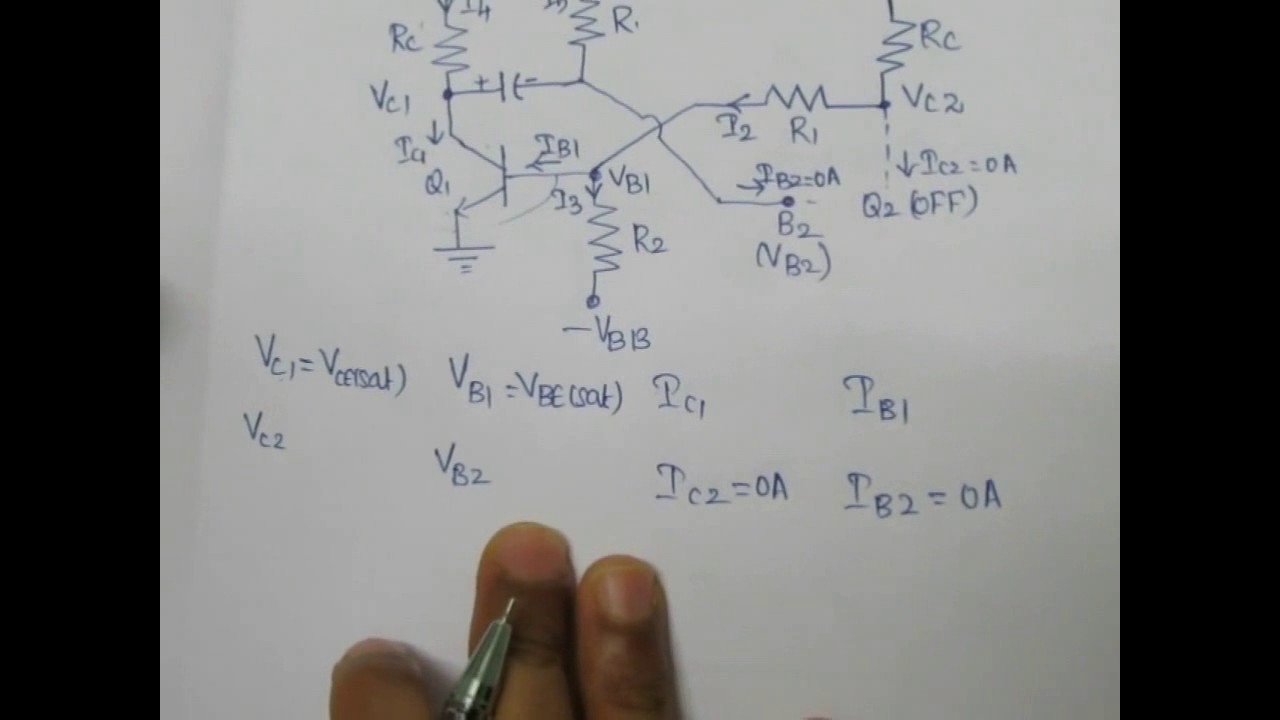 I4
R.
RC
RC
+ -
VC1
VC2
R1
I2
IC1
IB1
Q1
VB1
I3
IB2=0A
IC2=0A
B2
Q2 (OFF)
R2
(VB2)
-VBB
VC1=VCE(sat) VB1=VBE(sat) IC1 IB1
VC2
VB2 IC2=0A IB2=0A